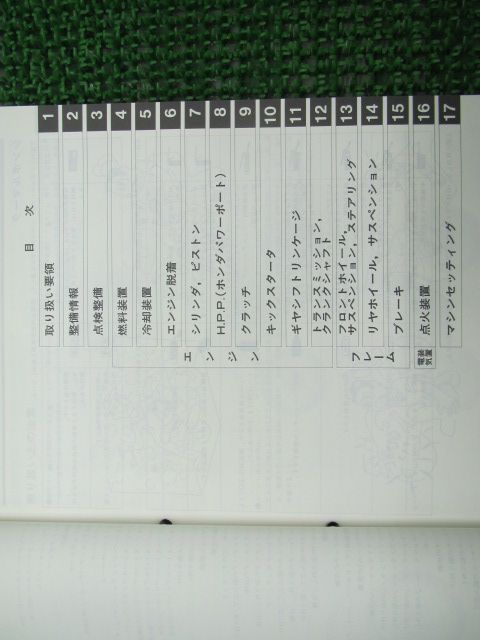 目 次
取り扱い要領 1
整備情報 2
点検整備 3
燃料装置 4
冷却装置 5
エンジン脱着 6
シリンダ, ピストン 7
H.P.P.(ホンダパワーポート) 8
クラッチ 9
キックスタータ 10
ギヤシフトリンケージ 11
トランスミッション,
クランクシャフト 12
フロントホイール,
サスペンション, ステアリング 13
リヤホイール, サスペンション 14
ブレーキ 15
点火装置 16
マシンセッティング 17
エンジン
フレーム
電装
気置